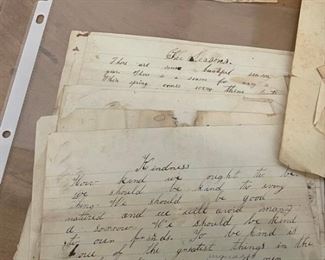 The Seasons
There are some beautiful season
year. There is a season for every
This spring comes every thing
Kindness
How kind we ought to be
we should be kind to every
thing. We should be good
natured and we will avoid many
a sorrow. We should be kind
to our friends. To be kind is
one of the greatest things in the